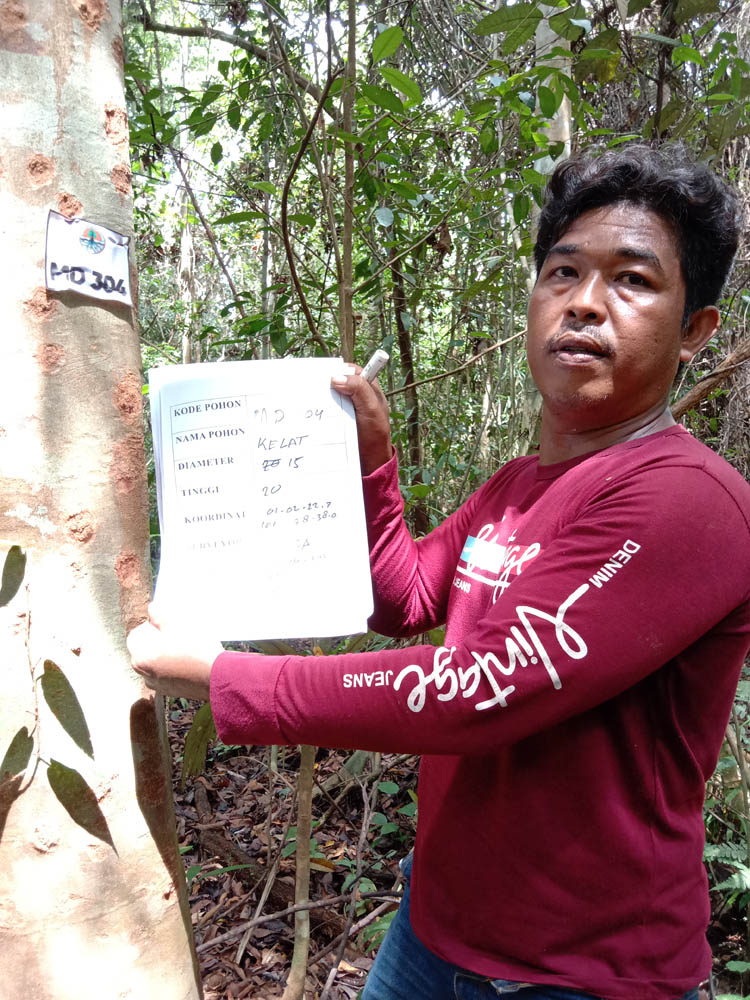 MD 304
KODE POHON
NAMA POHON KELAT
DIAMETER 15
TINGGI 20
KOORDINAT 01-02-22.7
vintage
JEANS
DENIM
Vintage
JEANS